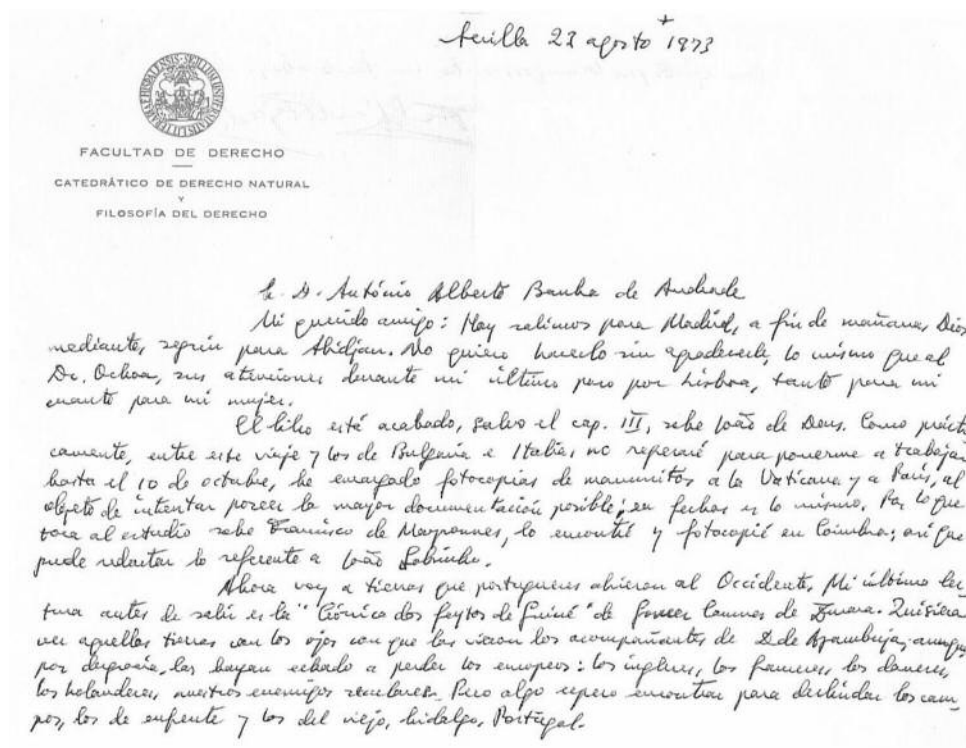 Sevilla 23 agosto 1973
FACULTAD DE DERECHO
CATEDRÁTICO DE DERECHO NATURAL
Y
FILOSOFÍA DEL DERECHO
D. António Alberto Banha de Andrade
Mi querido amigo: Hoy salimos para Madrid, a fin de mañana, Dios
mediante, seguir para Abidjan. No quiero hacerlo sin agradecerle, lo mismo que al
Dr. Ochoa, sus atenciones durante mi último paso por Lisboa, tanto para mi
cuanto para mi mujer.
El libro está acabado, salvo el cap. III, sobe João de Deus. Como prácti
camente, entre este viaje y los de Bulgaria e Italia, no regresaré para ponerme a trabajar
hasta el 10 de octubre, he encargado fotocopias de manuscritos a la Vaticana y a París, al
objeto de intentar poseer la mayor documentación posible; en fechas es lo mismo. Por lo que
toca al estudio sobe Francisco de Mayronnes, lo encontré y fotocopié en Coimbra; así que
pude redactar lo referente a João Sobrinho.
Ahora voy a tierras que portugueses abrieron al Occidente. Mi última lec
tura antes de salir es la "Crónica dos feytos de Guiné" de Gomes Eannes de Zurara. Quisiera
ver aquellas tierras con los ojos con que las vieron los acompañantes de D. de Azambuja, aunque
por desgracia, las hayan echado a perder los europeos: los ingleses, los franceses, los daneses,
los holandeses, nuestros enemigos seculares. Pero algo espero encontrar para deslindar los cam-
pos, los de enfrente y los del viejo, hidalgo, Portugal.